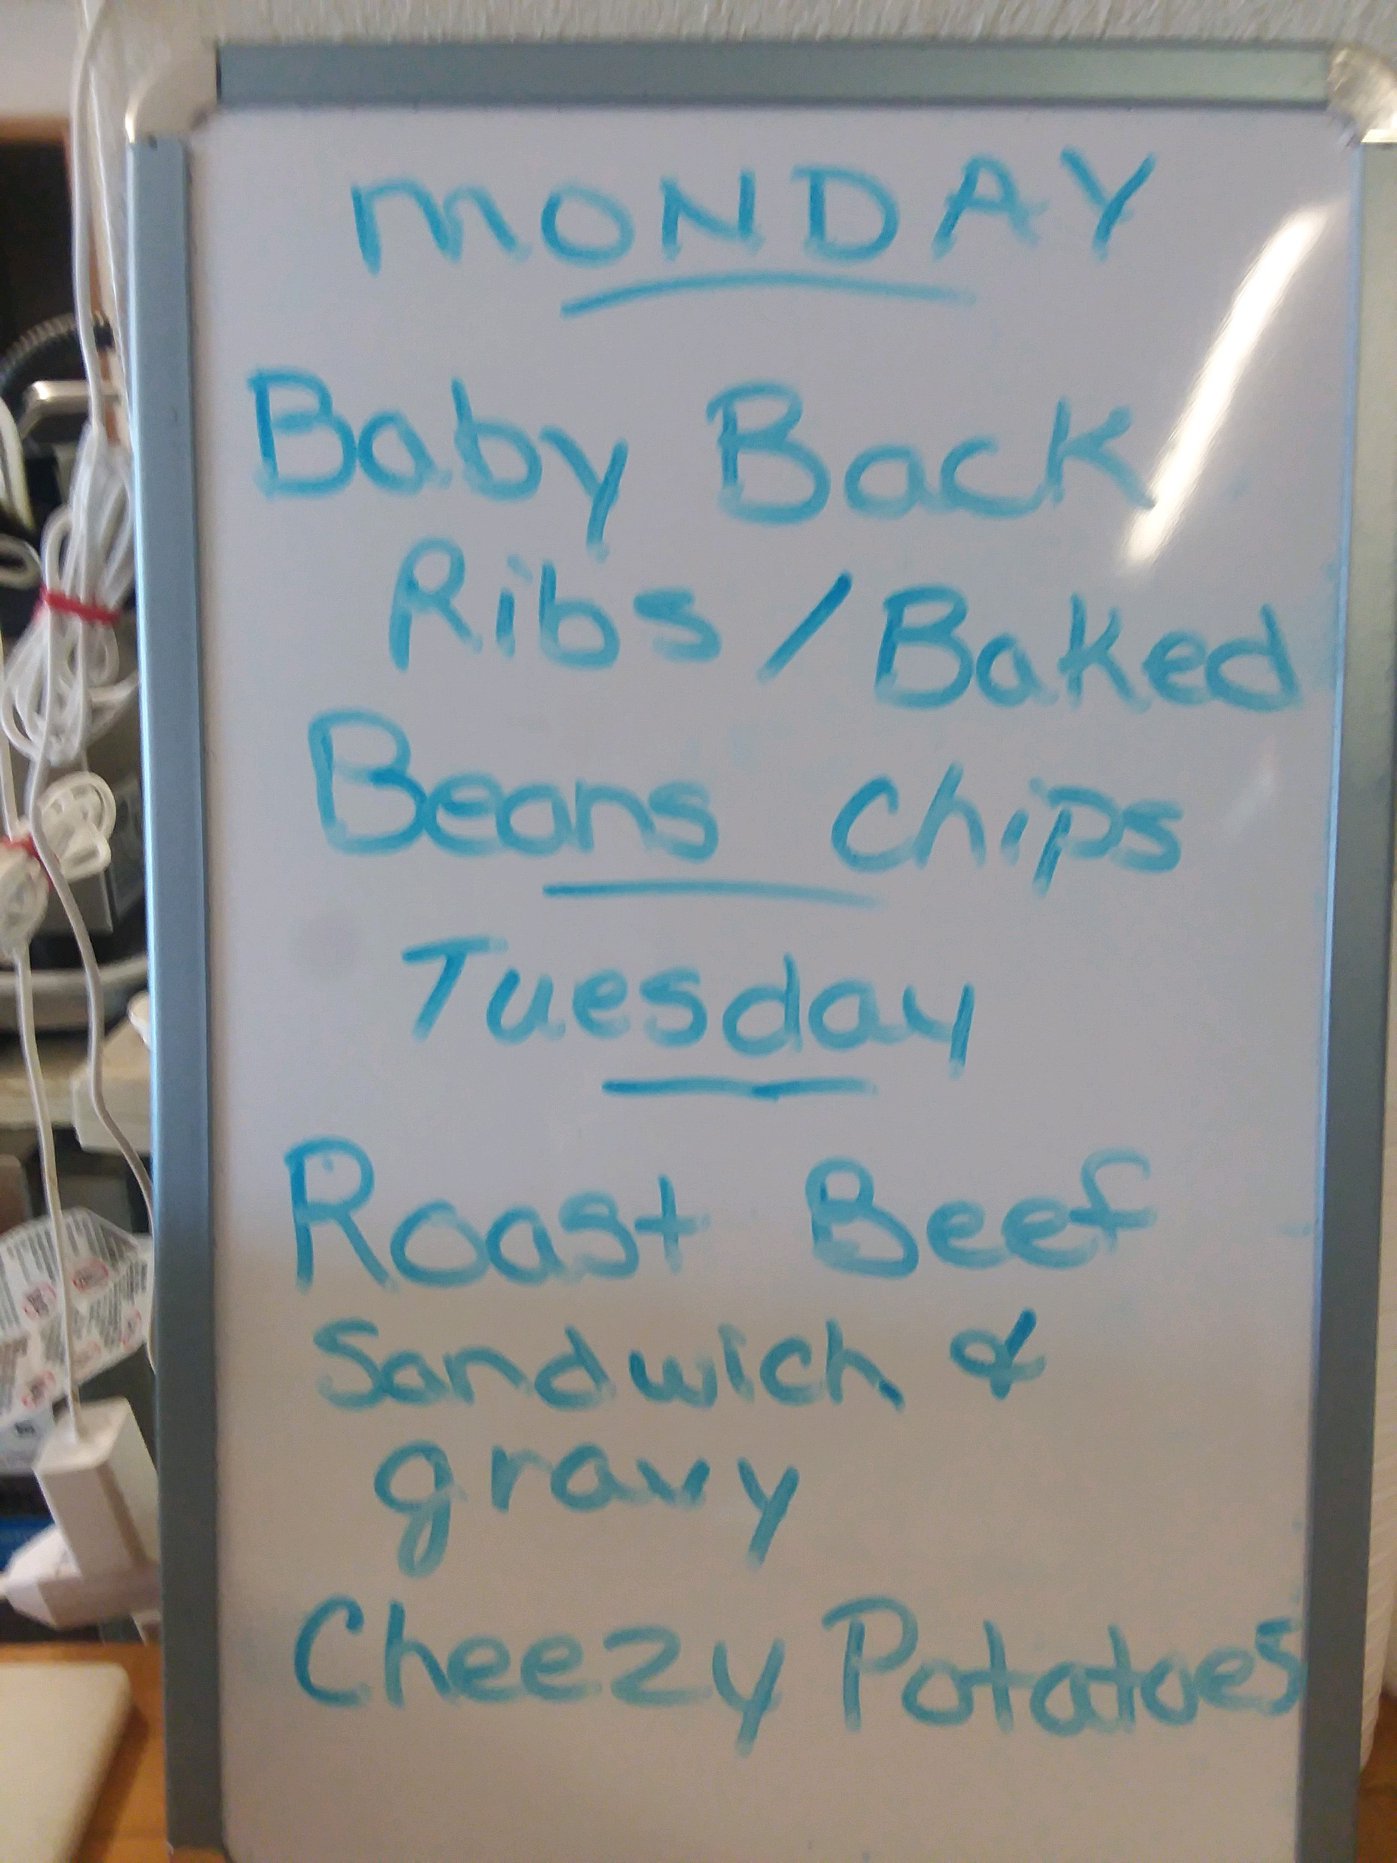 MONDAY
Baby Back
Ribs / Baked
Beans chips
Tuesday
Roast Beef
Sandwich &
gravy
Cheezy Potatoes